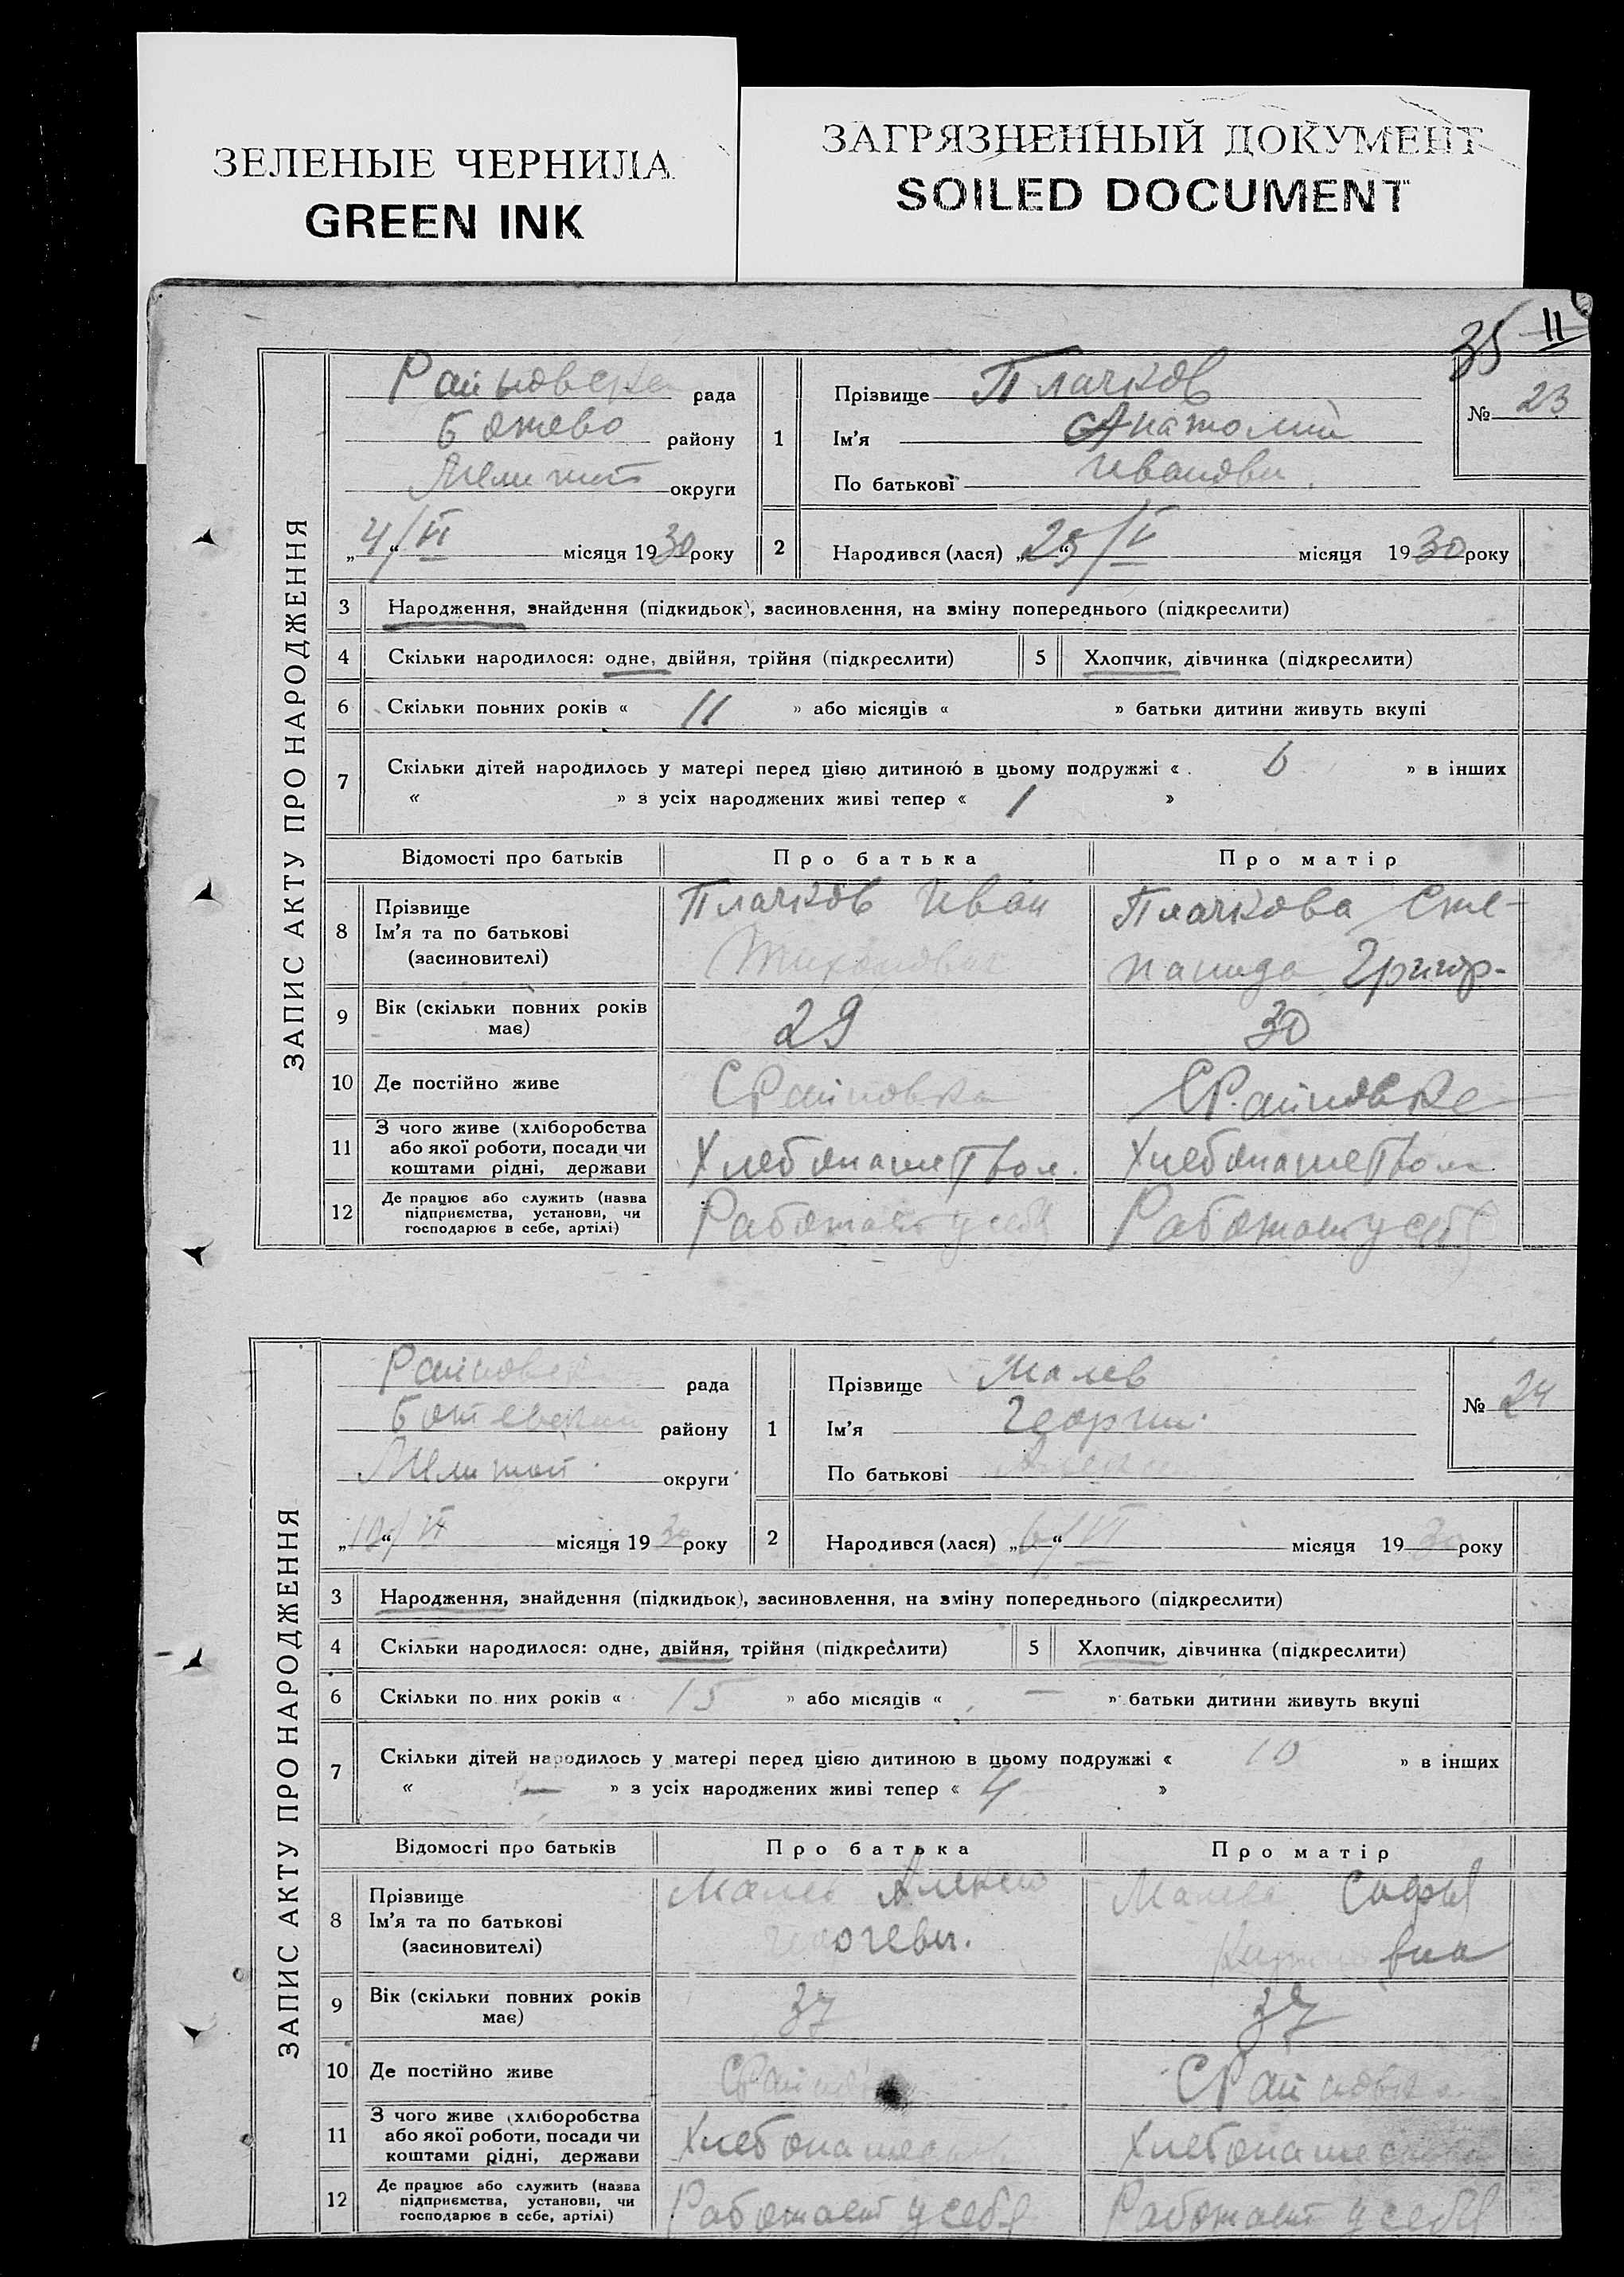 ЗЕЛЕНЫЕ ЧЕРНИЛА
GREEN INK
ЗАГРЯЗНЕННЫЙ ДОКУМЕНТ
SOILED DOCUMENT
35 11
ЗАПИС АКТУ ПРО НАРОДЖЕННЯ
рада
району
Мелитоп округи
„4/VI“ місяця 1930 року
1 Прізвище Плачков
Ім'я Анатолий
По батькові Иванови.
№ 23
2 Народився (лася) „25/V“ місяця 1930 року
3 Народження, знайдення (підкидьок), засиновлення, на зміну попереднього (підкреслити)
4 Скільки народилося: одне, двійня, трійня (підкреслити) 5 Хлопчик, дівчинка (підкреслити)
6 Скільки повних років « 11 » або місяців « » батьки дитини живуть вкупі
7 Скільки дітей народилось у матері перед цією дитиною в цьому подружжі « » в інших
« » з усіх народжених живі тепер « 1 »
Відомості про батьків Про батька Про матір
8 Прізвище Плачков Иван Плачкова Сте-
Ім'я та по батькові
(засиновителі) Тихонович панида Григор.
9 Вік (скільки повних років має) 29 30
10 Де постійно живе С Райновка С Райновка
11 З чого живе (хліборобства
або якої роботи, посади чи
коштами рідні, держави Хлебопашеством. Хлебопашеством
12 Де працює або служить (назва
підприємства, установи, чи
господарює в себе, артілі) Работает у себя Работает у себя
ЗАПИС АКТУ ПРО НАРОДЖЕННЯ
рада
Ботевский району
Мелитоп. округи
„10/VI“ місяця 1930 року
1 Прізвище Малев
Ім'я Георгий
По батькові
№ 24
2 Народився (лася) „6/VI“ місяця 1930 року
3 Народження, знайдення (підкидьок), засиновлення, на зміну попереднього (підкреслити)
4 Скільки народилося: одне, двійня, трійня (підкреслити) 5 Хлопчик, дівчинка (підкреслити)
6 Скільки по них років « 15 » або місяців « — » батьки дитини живуть вкупі
7 Скільки дітей народилось у матері перед цією дитиною в цьому подружжі « 10 » в інших
« — » з усіх народжених живі тепер « 4 »
Відомості про батьків Про батька Про матір
8 Прізвище Малев Алексей Малева Софья
Ім'я та по батькові
(засиновителі) Георгеви.
9 Вік (скільки повних років має) 37 37
10 Де постійно живе С Райновка С Райновка
11 З чого живе (хліборобства
або якої роботи, посади чи
коштами рідні, держави Хлебопашеством Хлебопашеством
12 Де працює або служить (назва
підприємства, установи, чи
господарює в себе, артілі) Работает у себя Работает у себя